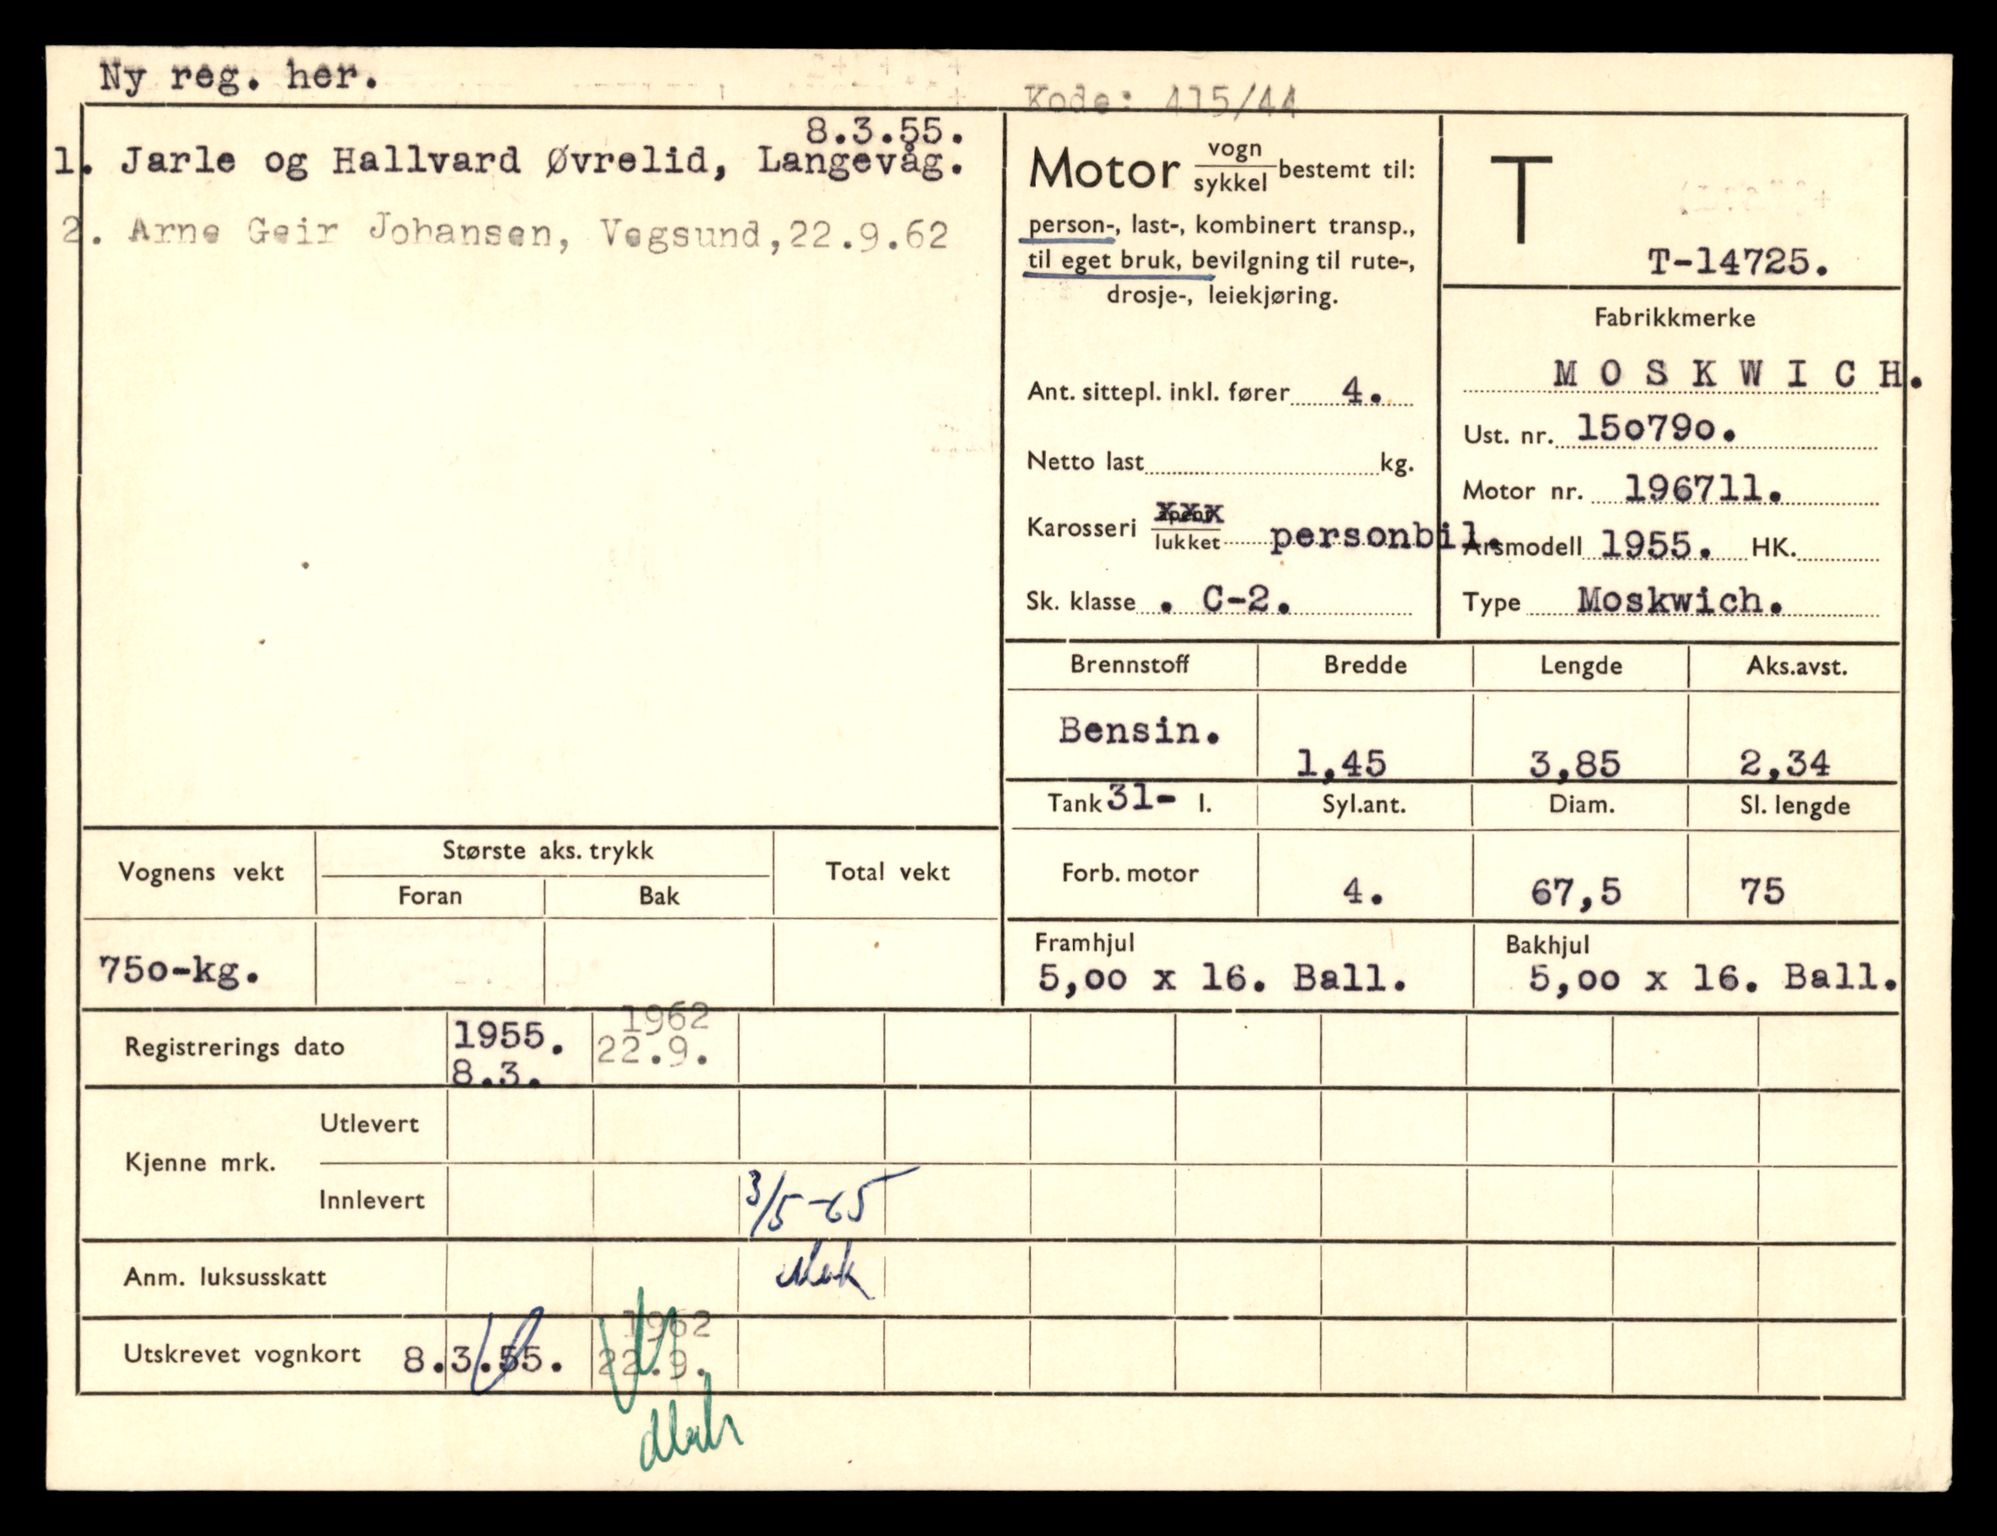 Ny reg. her.
Kode: 415/44
8.3.55.
1. Jarle og Hallvard Øvrelid, Langevåg.
2. Arne Geir Johansen, Vegsund,22.9.62
Motor vogn/sykkel bestemt til:
person-, last-, kombinert transp.,
til eget bruk, bevilgning til rute-,
drosje-, leiekjøring.
Ant. sittepl. inkl. fører 4.
Netto last kg.
Karosseri xxx lukket personbil.
Sk. klasse . C-2.
T
T-14725.
Fabrikkmerke
MOSKWICH.
Ust. nr. 15o79o.
Motor nr. 196711.
Årsmodell 1955. HK.
Type Moskwich.
Brennstoff Bredde Lengde Aks.avst.
Bensin. 1,45 3,85 2,34
Tank 31- l. Syl.ant. Diam. Sl. lengde
Forb. motor 4. 67,5 75
Framhjul Bakhjul
5,oo x 16. Ball. 5,oo x 16. Ball.
Vognens vekt Største aks. trykk Total vekt
Foran Bak
75o-kg.
Registrerings dato 1955. 8.3. 1962 22.9.
Kjenne mrk. Utlevert
Innlevert 3/5-65
Anm. luksusskatt
Utskrevet vognkort 8.3.55. 1962 22.9.